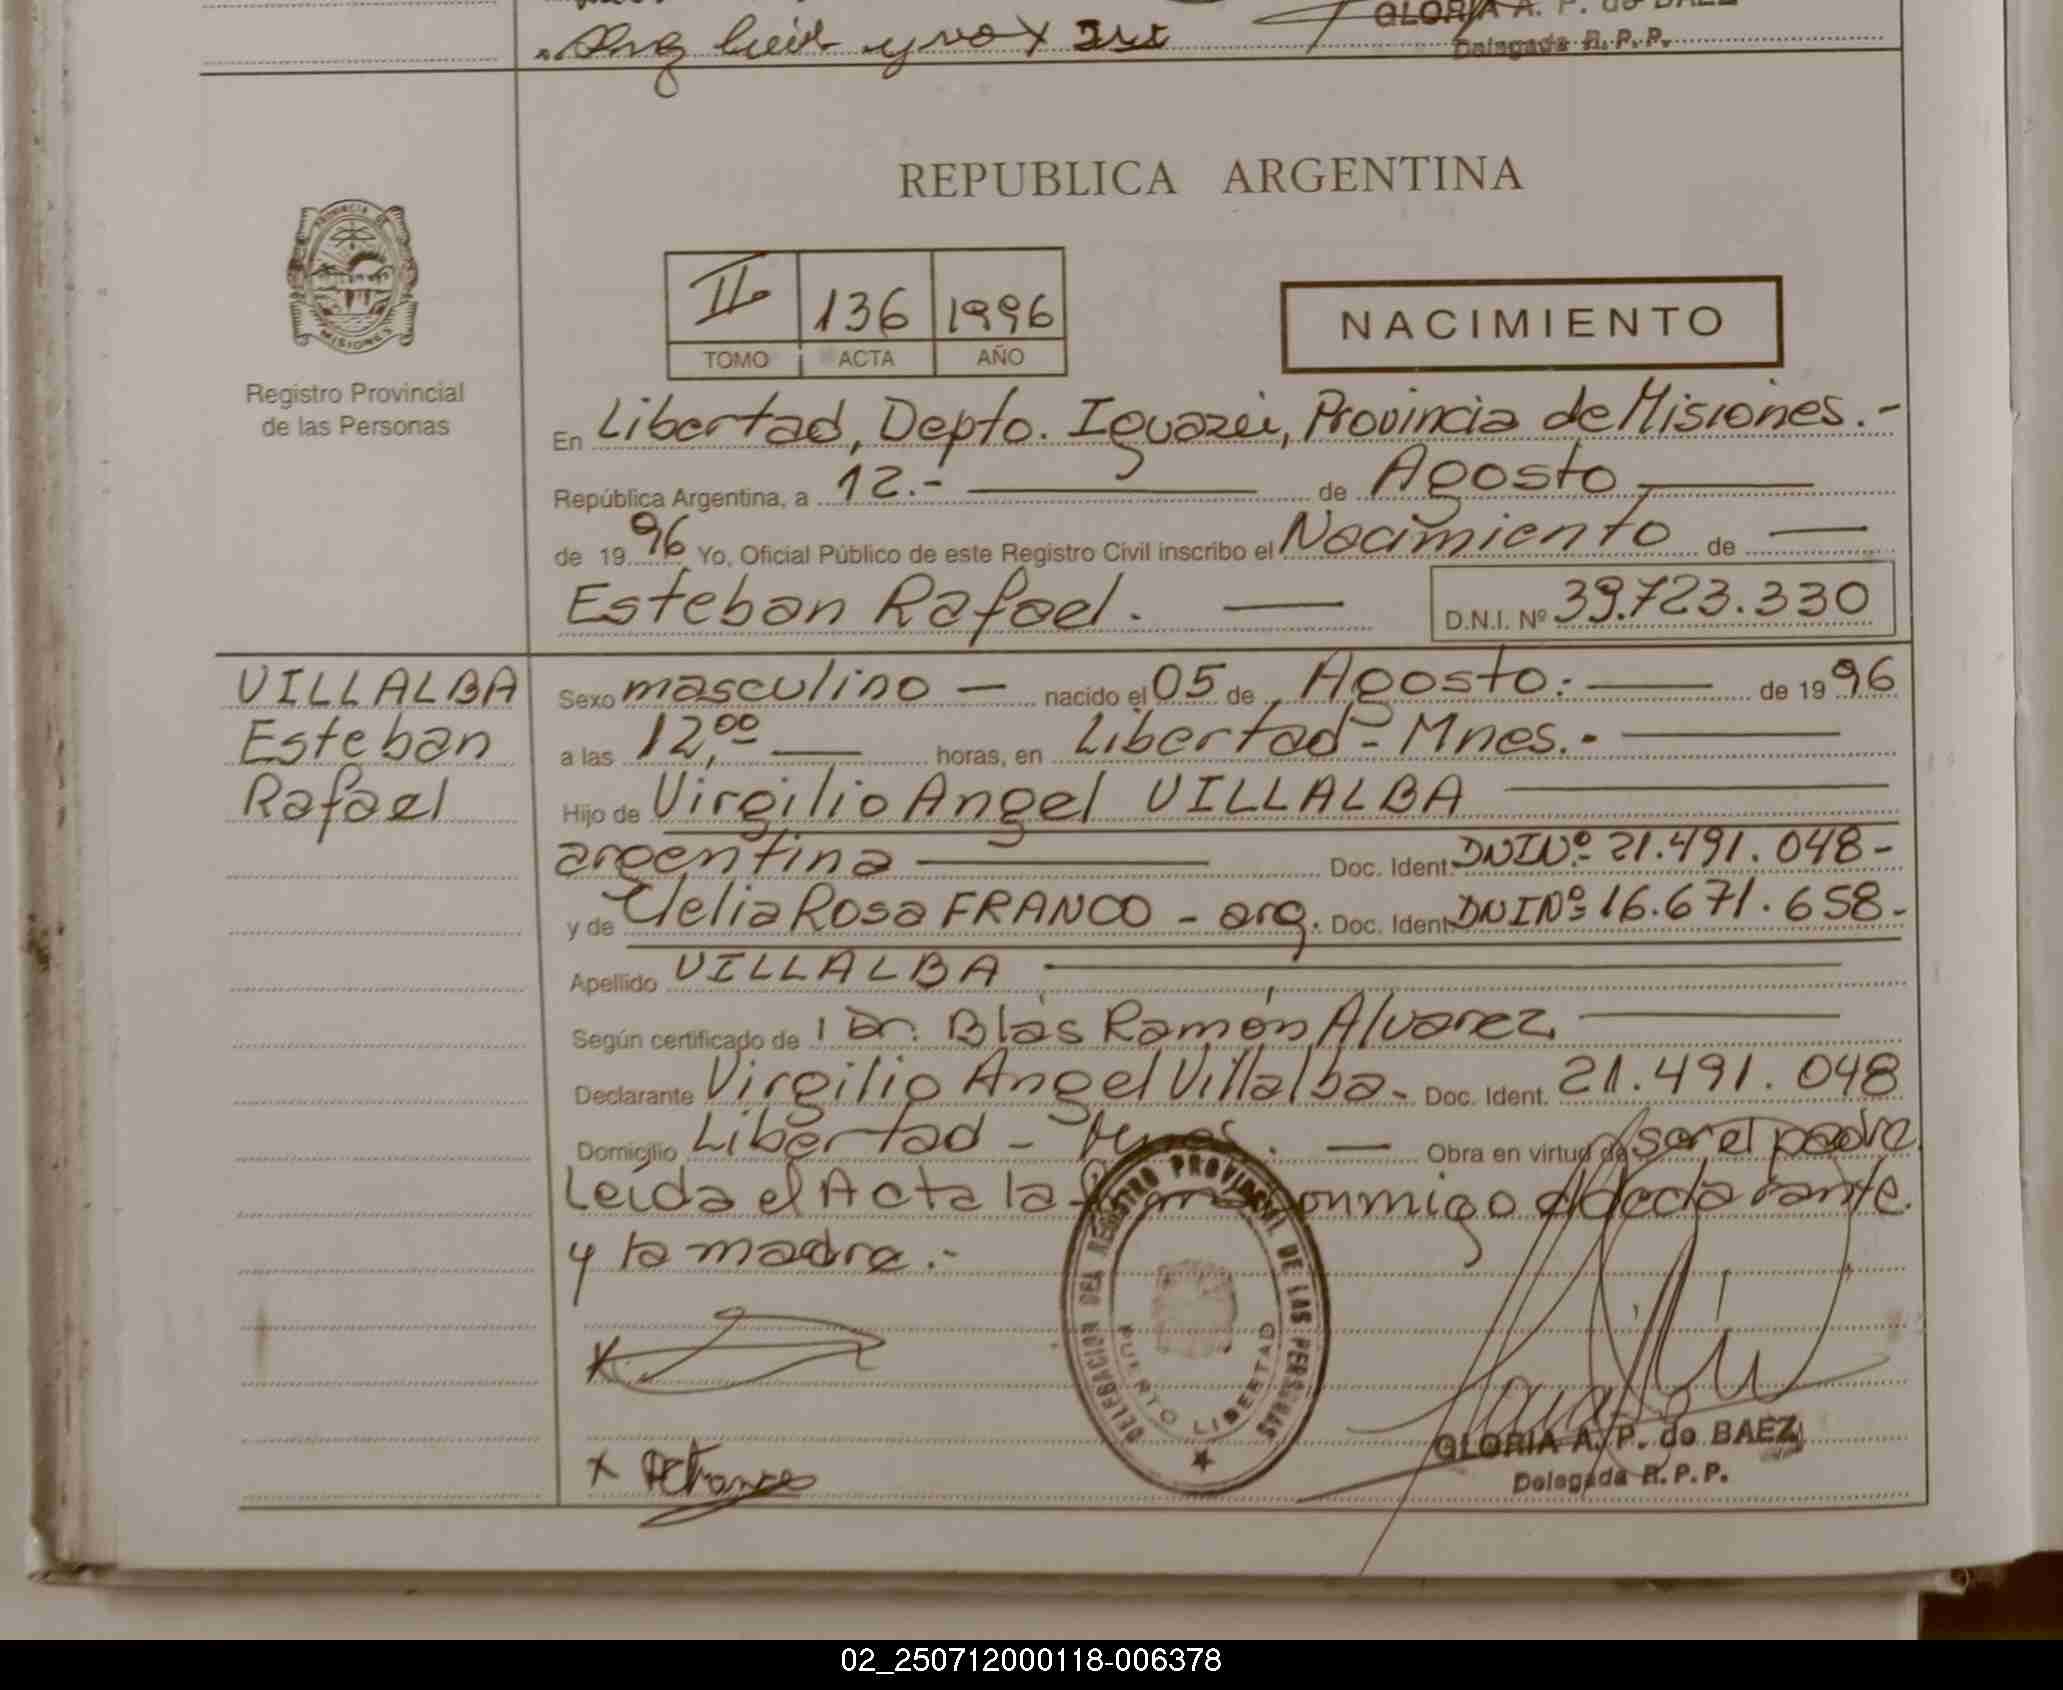 GLORIA A. P. de BAEZ
Delegada R.P.P.
REPUBLICA ARGENTINA
PROVINCIA DE MISIONES
Registro Provincial
de las Personas
II 136 1996
TOMO ACTA AÑO
NACIMIENTO
En Libertad, Depto. Iguazú, Provincia de Misiones.-
República Argentina, a 12.- de Agosto
de 1996 Yo, Oficial Público de este Registro Civil inscribo el Nacimiento de
Esteban Rafael. D.N.I. Nº 39.723.330
VILLALBA
Esteban
Rafael
Sexo masculino nacido el 05 de Agosto.- de 1996
a las 12,00 horas, en Libertad - Mnes.-
Hijo de Virgilio Angel VILLALBA
argentina Doc. Ident. DNI Nº 21.491.048-
y de Clelia Rosa FRANCO - arg. Doc. Ident. DNI Nº 16.671.658-
Apellido VILLALBA
Según certificado de Dr. Blás Ramón Alvarez
Declarante Virgilio Angel Villalba- Doc. Ident. 21.491.048
Domicilio Libertad - Mnes. Obra en virtud de ser el padre
Leída el Acta la firma conmigo el declarante
y la madre.-
DELEGACION DEL REGISTRO PROVINCIAL DE LAS PERSONAS
PUERTO LIBERTAD
GLORIA A. P. de BAEZ
Delegada R.P.P.
02_250712000118-006378